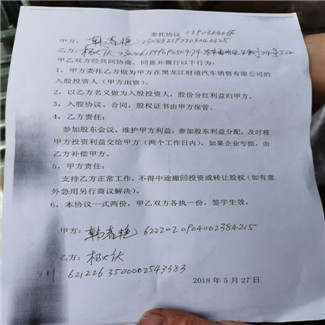 委托协议
甲方:韩春艳
乙方:
甲乙双方经共同协商,同意并履行以下行为:
1、甲方委托乙方做为甲方在黑龙江财道汽车销售有限公司的
入股投资人(甲方出资)。
2、以乙方名义做为入股投资人,股份分红利益归甲方。
3、入股协议、合同,股权证书由甲方保管。
4、乙方责任:
参加股东会议,维护甲方利益,参加股东利益分配,及时将
甲方投资利益交给甲方(两个工作日内)。如果企业亏损,由
乙方补偿甲方。
5、甲方责任:
支持乙方正常工作,不得中途撤回投资或转让股权(如有意
外急用另行商议解决)。
6、本协议一式两份,甲乙双方各执一份,签字生效。
甲方:韩春艳 622202 0904002384215
乙方:
621226 3500002543583
2018 年 5 月 27 日